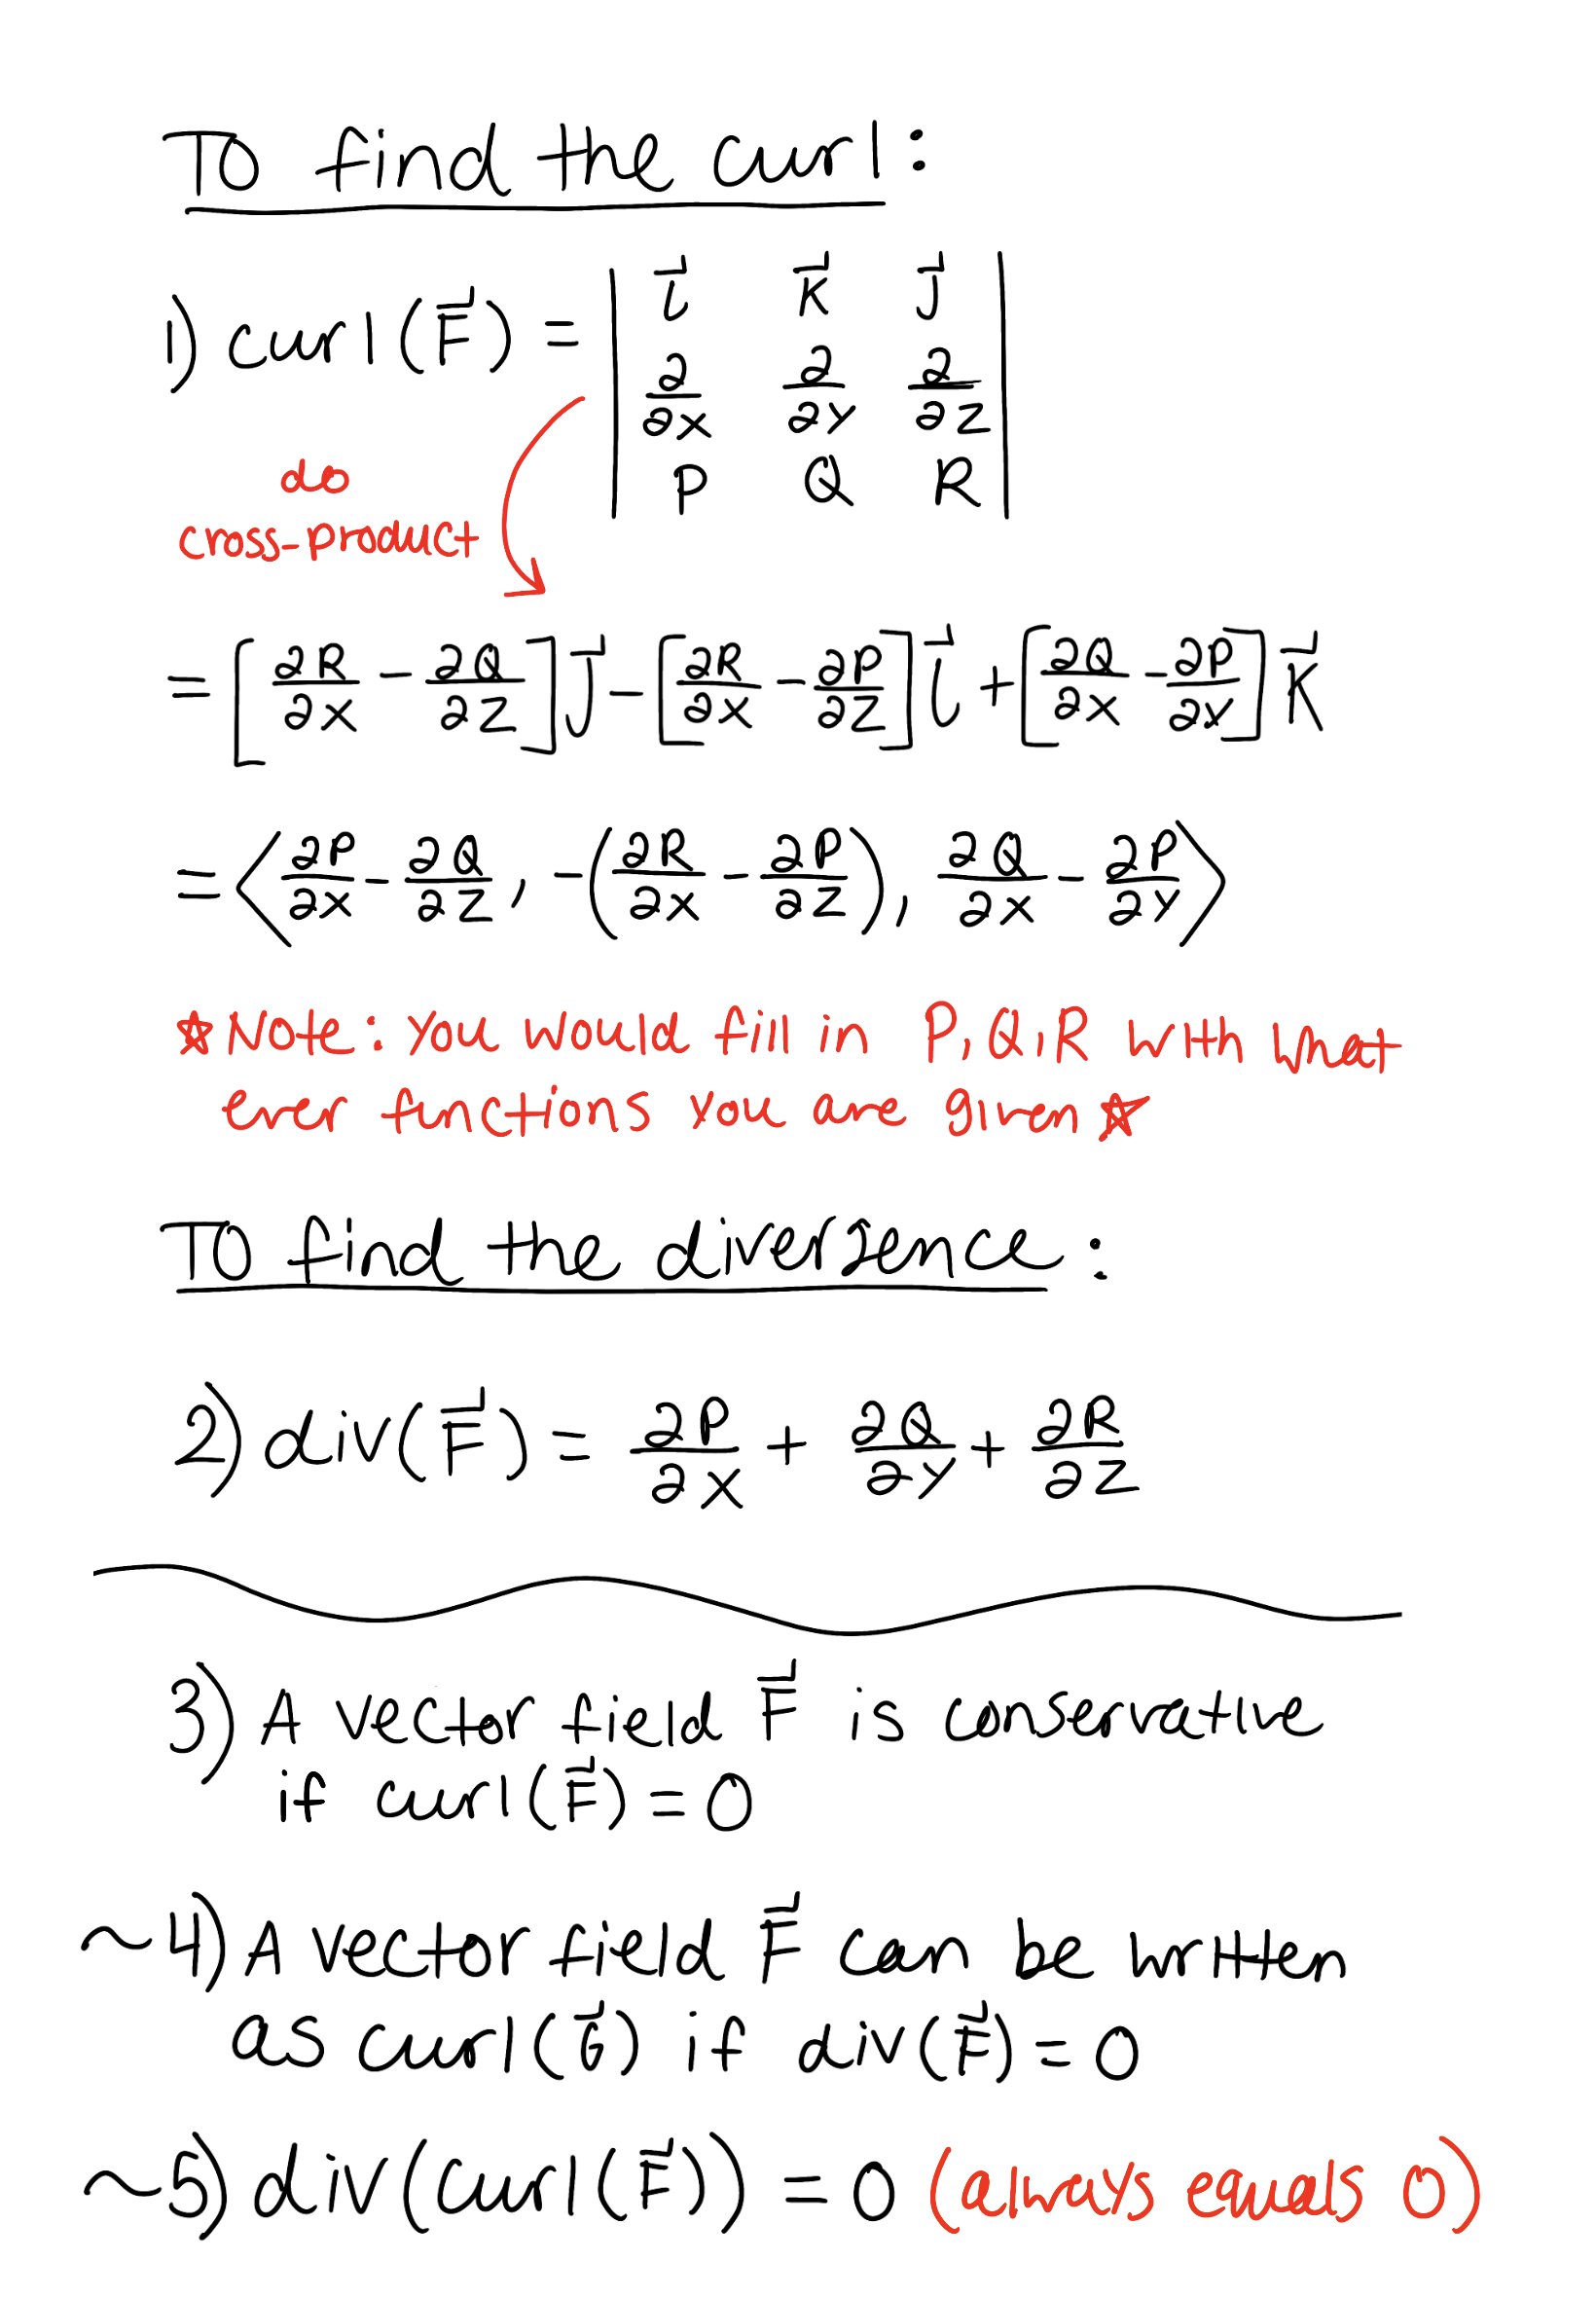 To find the curl:
1) curl(F⃗) = | i⃗ k⃗ j⃗ |
| ∂/∂x ∂/∂y ∂/∂z |
| P Q R |
do
cross-product
= [∂R/∂x - ∂Q/∂z] j⃗ - [∂R/∂x - ∂P/∂z] i⃗ + [∂Q/∂x - ∂P/∂y] k⃗
= ⟨∂P/∂x - ∂Q/∂z, -(∂R/∂x - ∂P/∂z), ∂Q/∂x - ∂P/∂y⟩
☆Note: you would fill in P,Q,R with what
ever functions you are given☆
To find the divergence:
2) div(F⃗) = ∂P/∂x + ∂Q/∂y + ∂R/∂z
3) A vector field F⃗ is conservative
if curl(F⃗) = 0
~4) A vector field F⃗ can be written
as curl(G⃗) if div(F⃗) = 0
~5) div(curl(F⃗)) = 0 (always equals 0)